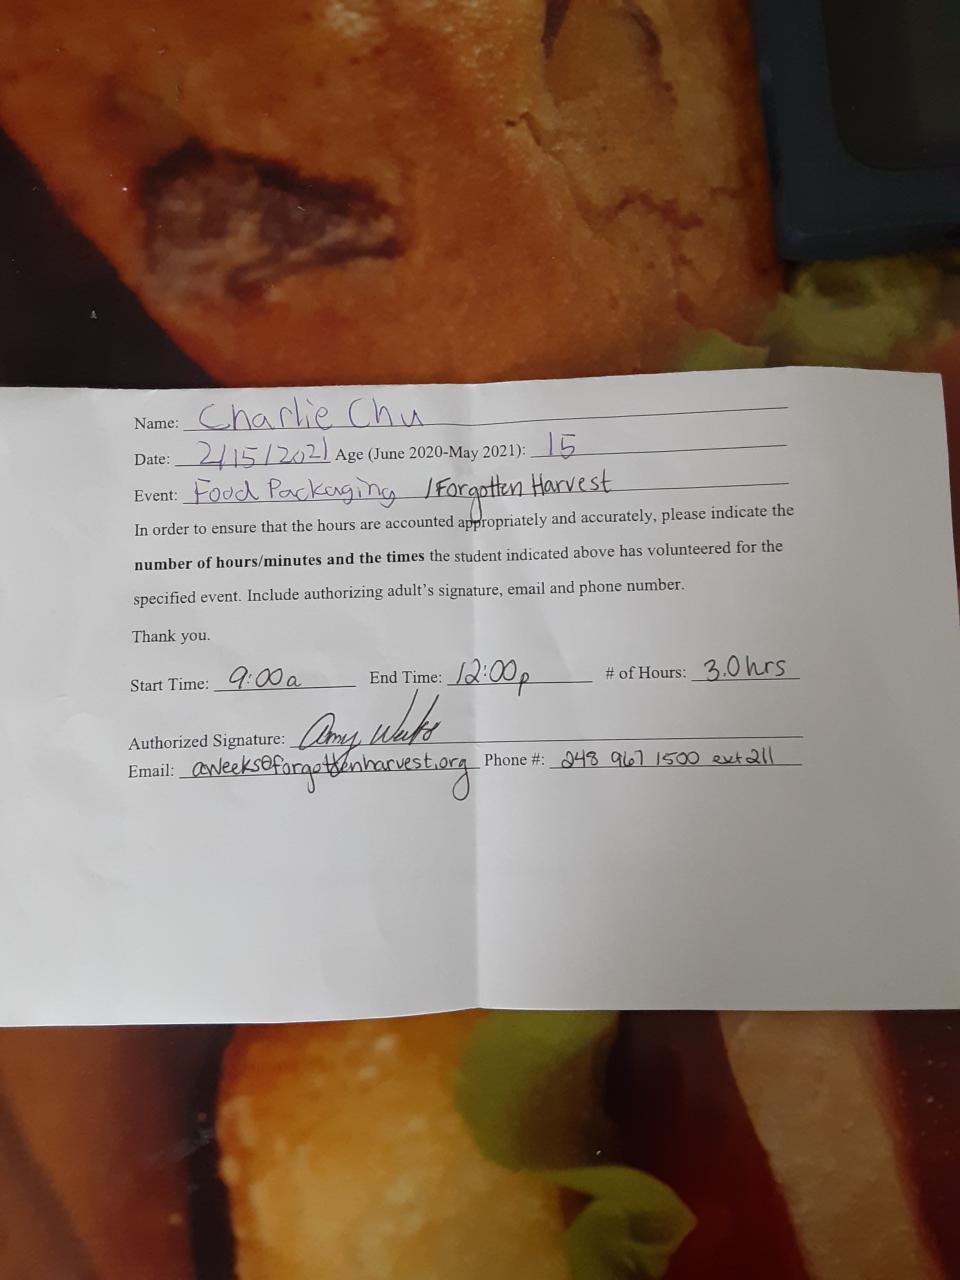 Name: Charlie Chu
Date: 2/15/2021 Age (June 2020-May 2021): 15
Event: Food Packaging / Forgotten Harvest
In order to ensure that the hours are accounted appropriately and accurately, please indicate the
number of hours/minutes and the times the student indicated above has volunteered for the
specified event. Include authorizing adult's signature, email and phone number.
Thank you.
Start Time: 9:00a End Time: 12:00p # of Hours: 3.0 hrs
Authorized Signature: Amy Weeks
Email: aweeks@forgottenharvest.org Phone #: 248 967 1500 ext 211